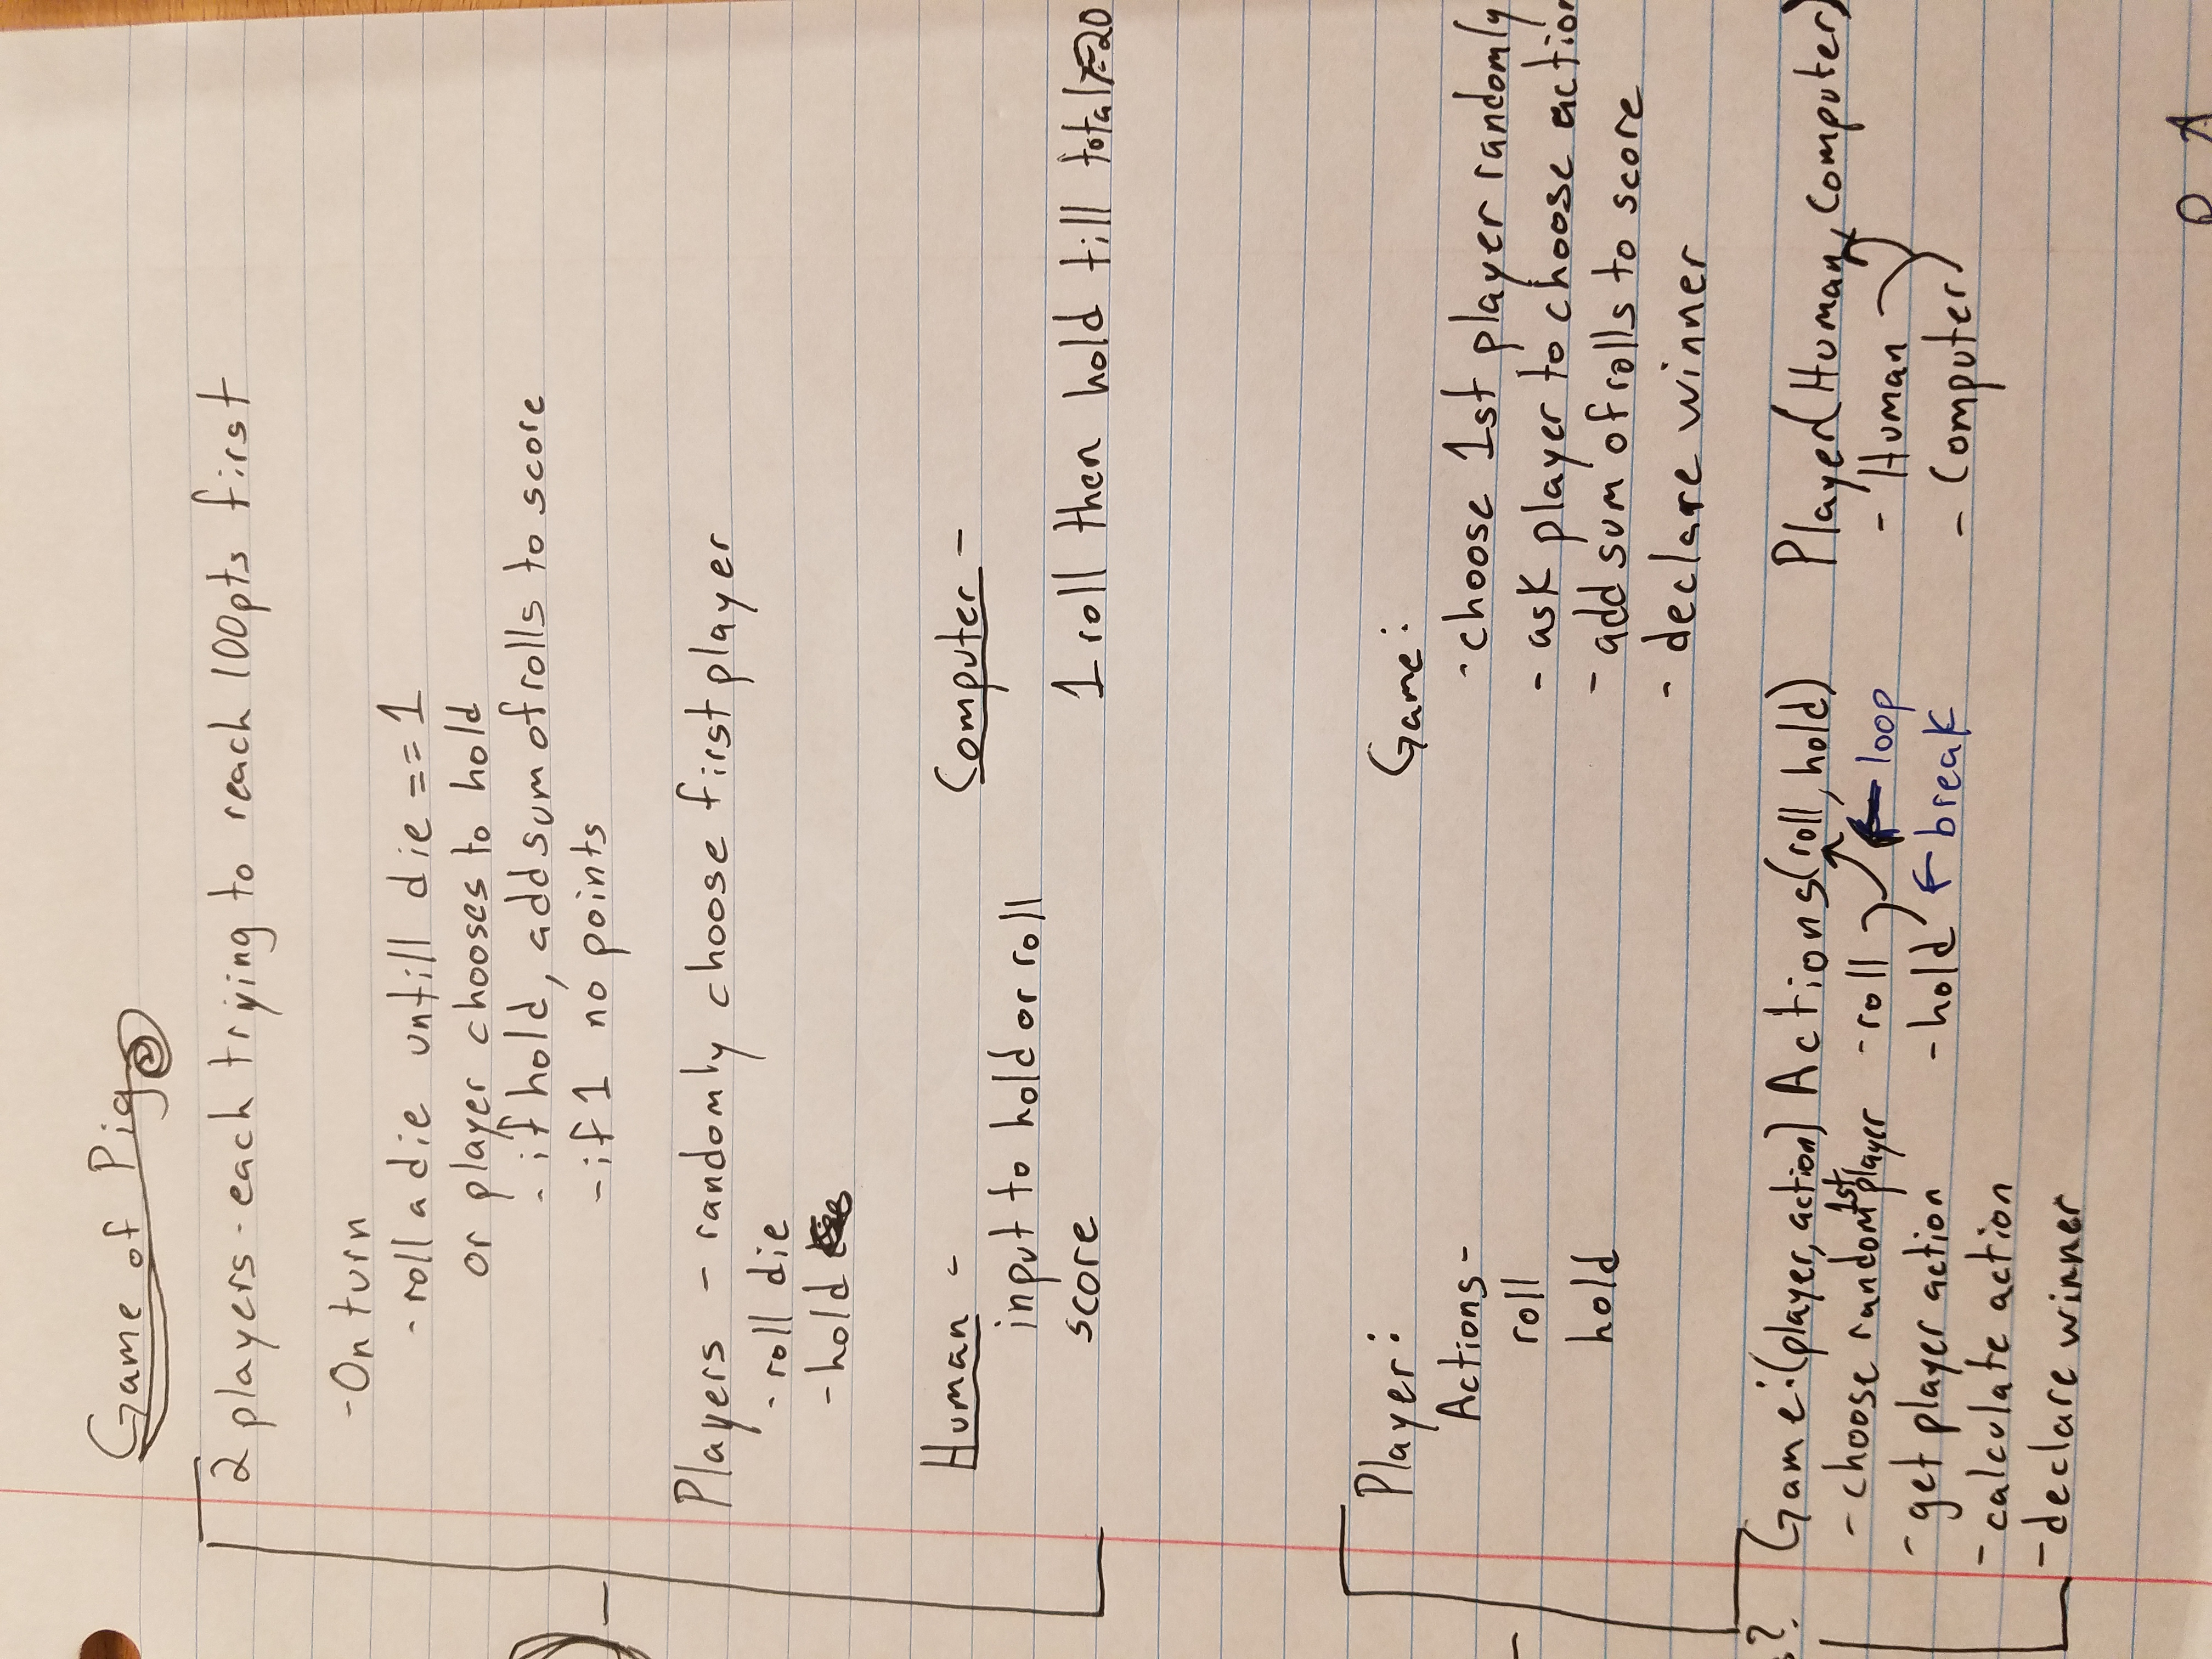 Game of Pig
2 players - each trying to reach 100pts first
- On turn
- roll a die untill die == 1
or player chooses to hold
- if hold, add sum of rolls to score
- if 1 no points
Players - randomly choose first player
- roll die
- hold
Human -
input to hold or roll
score
Computer -
1 roll then hold till total >= 20
Player:
Actions -
roll
hold
Game:
- choose 1st player randomly
- ask player to choose action
- add sum of rolls to score
- declare winner
?
Game: (player, action)
- choose random 1st player
- get player action
- calculate action
- declare winner
Actions (roll, hold)
- roll ← loop
- hold ← break
Player (Human, Computer)
- Human
- Computer